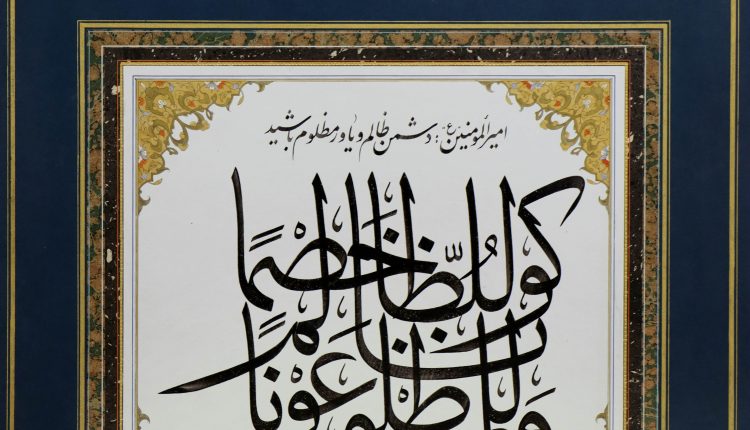 امیرالمؤمنین ع : دشمن ظالم و یاور مظلوم باشید
کونا للظّالم خصمًا
وَللمظلوم عَونًا